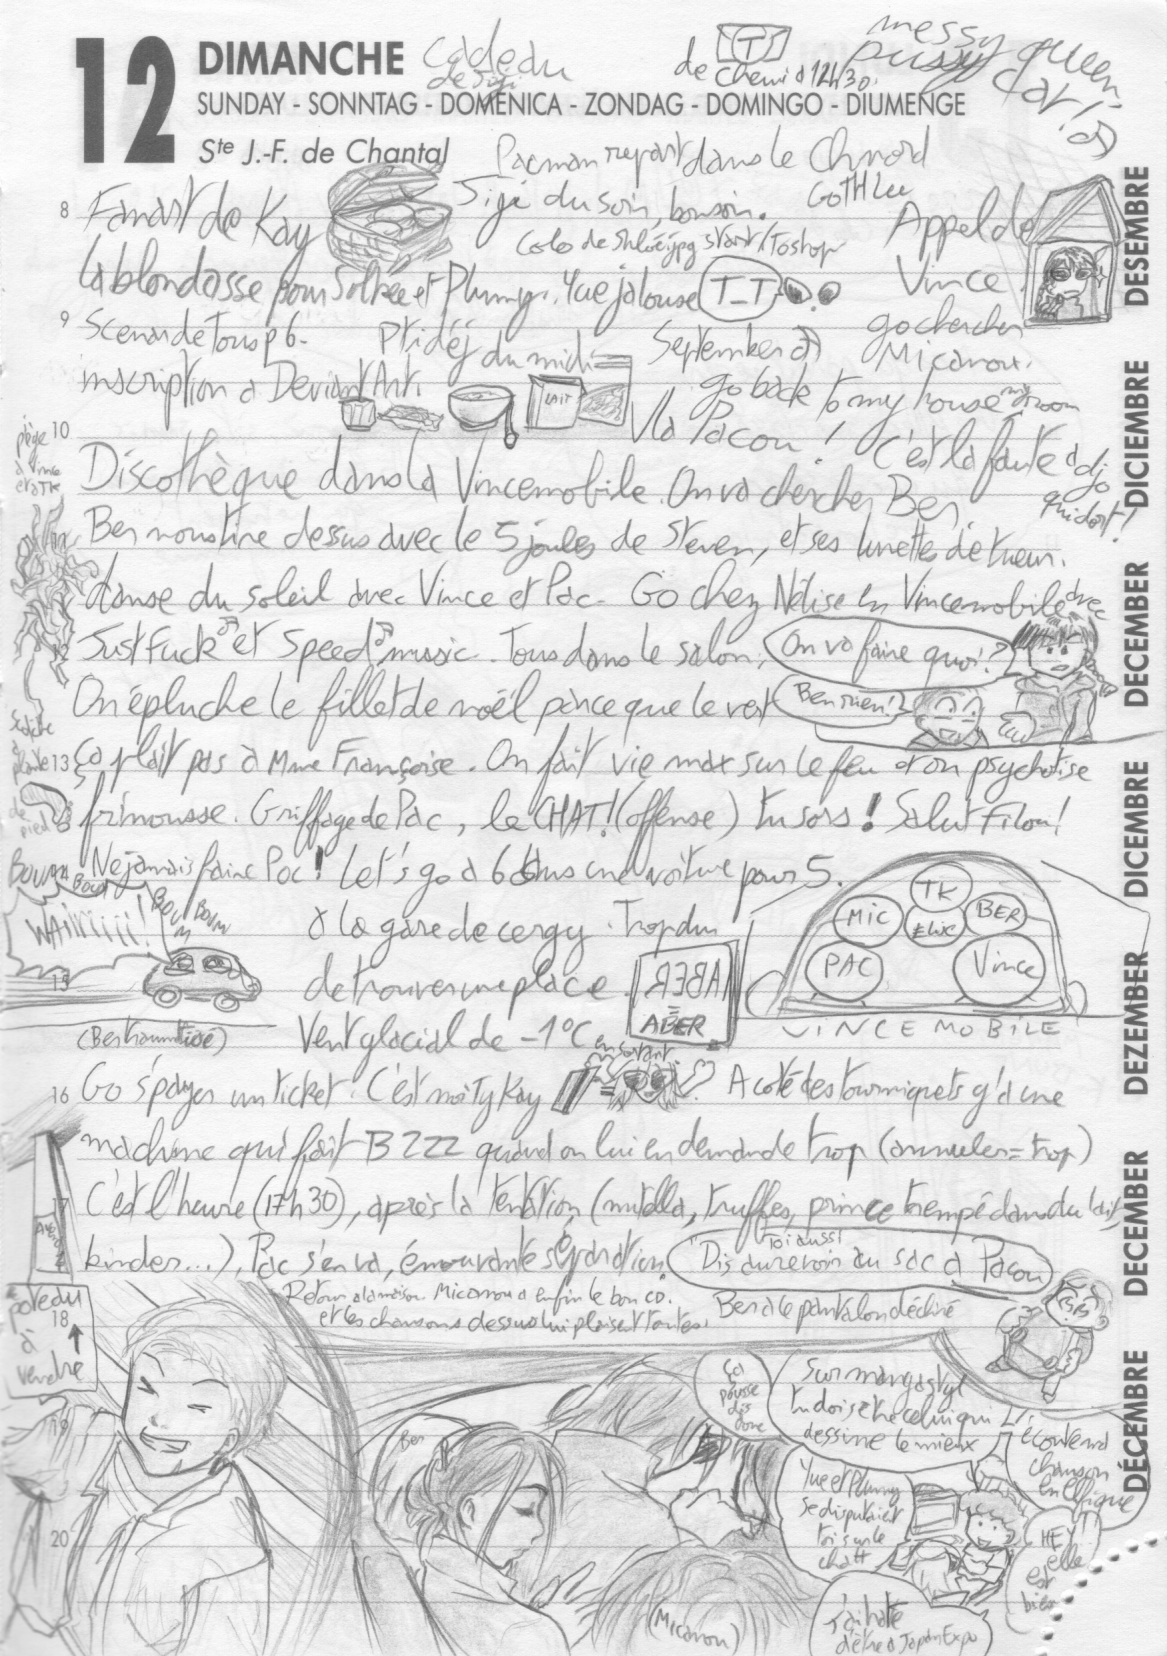 12 DIMANCHE
SUNDAY - SONNTAG - DOMENICA - ZONDAG - DOMINGO - DIUMENGE
Ste J.-F. de Chantal
cadeau
de chemi à 12h30.
messy
pussy queen,
car!
Pacman repart dans le Chnord
GotHlee
8
Fanart de Kay
5 igé du soin, bonsoin.
Appel de
Vince
go chercher
Micarou.
La blondasse pour Solkee et Plumy. Yue jalouse T_T
9
Scenar de Tous p 6.
Ptidéj du midi
LAIT
September
inscription à DeviantArt.
go back to my house my room
10
V'la Pacou !
C'est la faute à djo
qui dort !
piège
à Vince
et à TK
Discothèque dans la Vincemobile. On va chercher Ber.
Ber nous tire dessus avec le 5 joules de Steven, et ses lunettes de tueur.
danse du soleil avec Vince et Pac. Go chez Nélise en Vincemobile avec
12
Just Fuck et Speed music. Tous dans le salon,
On va faire quoi ?
On épluche le fillet de noël parce que le vert
Ben rien !
13
ça plait pas à Mme Françoise. On fait vie max sur le feu et on psychotise
frimousse. Griffage de Pac, le CHAT! (offense) tu sors ! Salut Filou !
de
pied
Ne jamais faire Pac ! Let's go à 6 dans une voiture pour 5.
BOUM
BOUM
BOUM
BOUM
WAiiiiiii !
à la gare de cergy. Trop dur
de trouver une place.
ABER
=
ABER
TK
MIC
BER
PAC
Vince
VINCEMOBILE
15
(Ber traumatisé)
Vent glacial de -1°C
en sortant
16
Go s'payer un ticket. C'est moi Ty Kay
A coté des tourniquets y'a une
machine qui fait BZZZ quand on lui en demande trop (annuler = trop)
17
C'est l'heure (17h30), après la tentation (nutella, truffes, prince trempé dans du lait,
kinder...), Pac s'en va, émouvante séparation.
Toi aussi
Dis aurevoir au sac à Pacou
Retour à la maison. Micarou a enfin le bon CD.
et les chansons dessus lui plaisent toutes.
Ber a le pantalon déchiré
poteau
18
à
vendre
19
20
Ber
(Micarou)
ça
pousse
dis
donc
Sur mangastyl
tu dois etre celui qui
dessine le mieux
écoute ma
chanson
Yue et Plumy
se disputaient
toi sur le
chatt
HEY
elle
est
bien
J'ai hate
d'etre à Japan Expo
DESEMBRE
DICIEMBRE
DECEMBER
DICEMBRE
DEZEMBER
DECEMBER
DÉCEMBRE